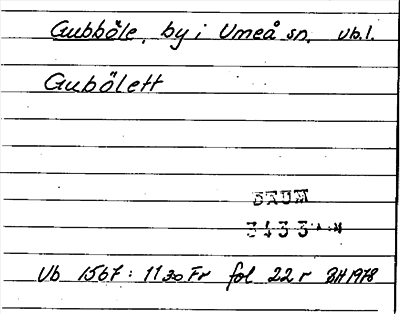 Gubböle, by i Umeå sn. vb.l.
Gubölett
DAUM
3433
Vb 1567: 11 30 Fr fol 22 r BH 1978